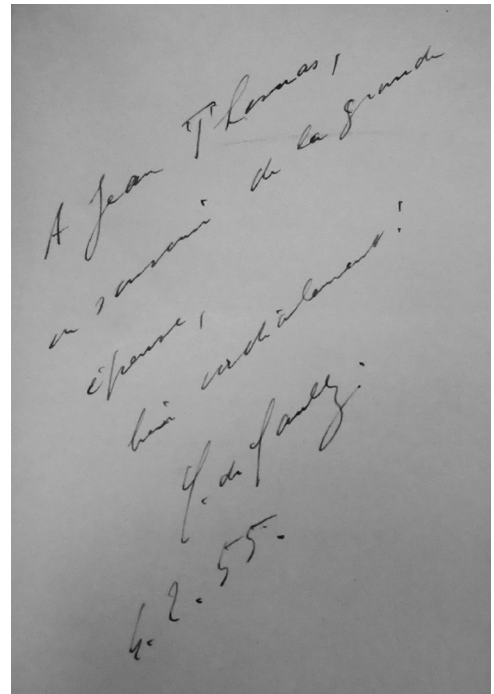 A Jean Thomas,
en souvenir de la grande
épreuve,
bien cordialement !
C. de Gaulle.
4.2.55.